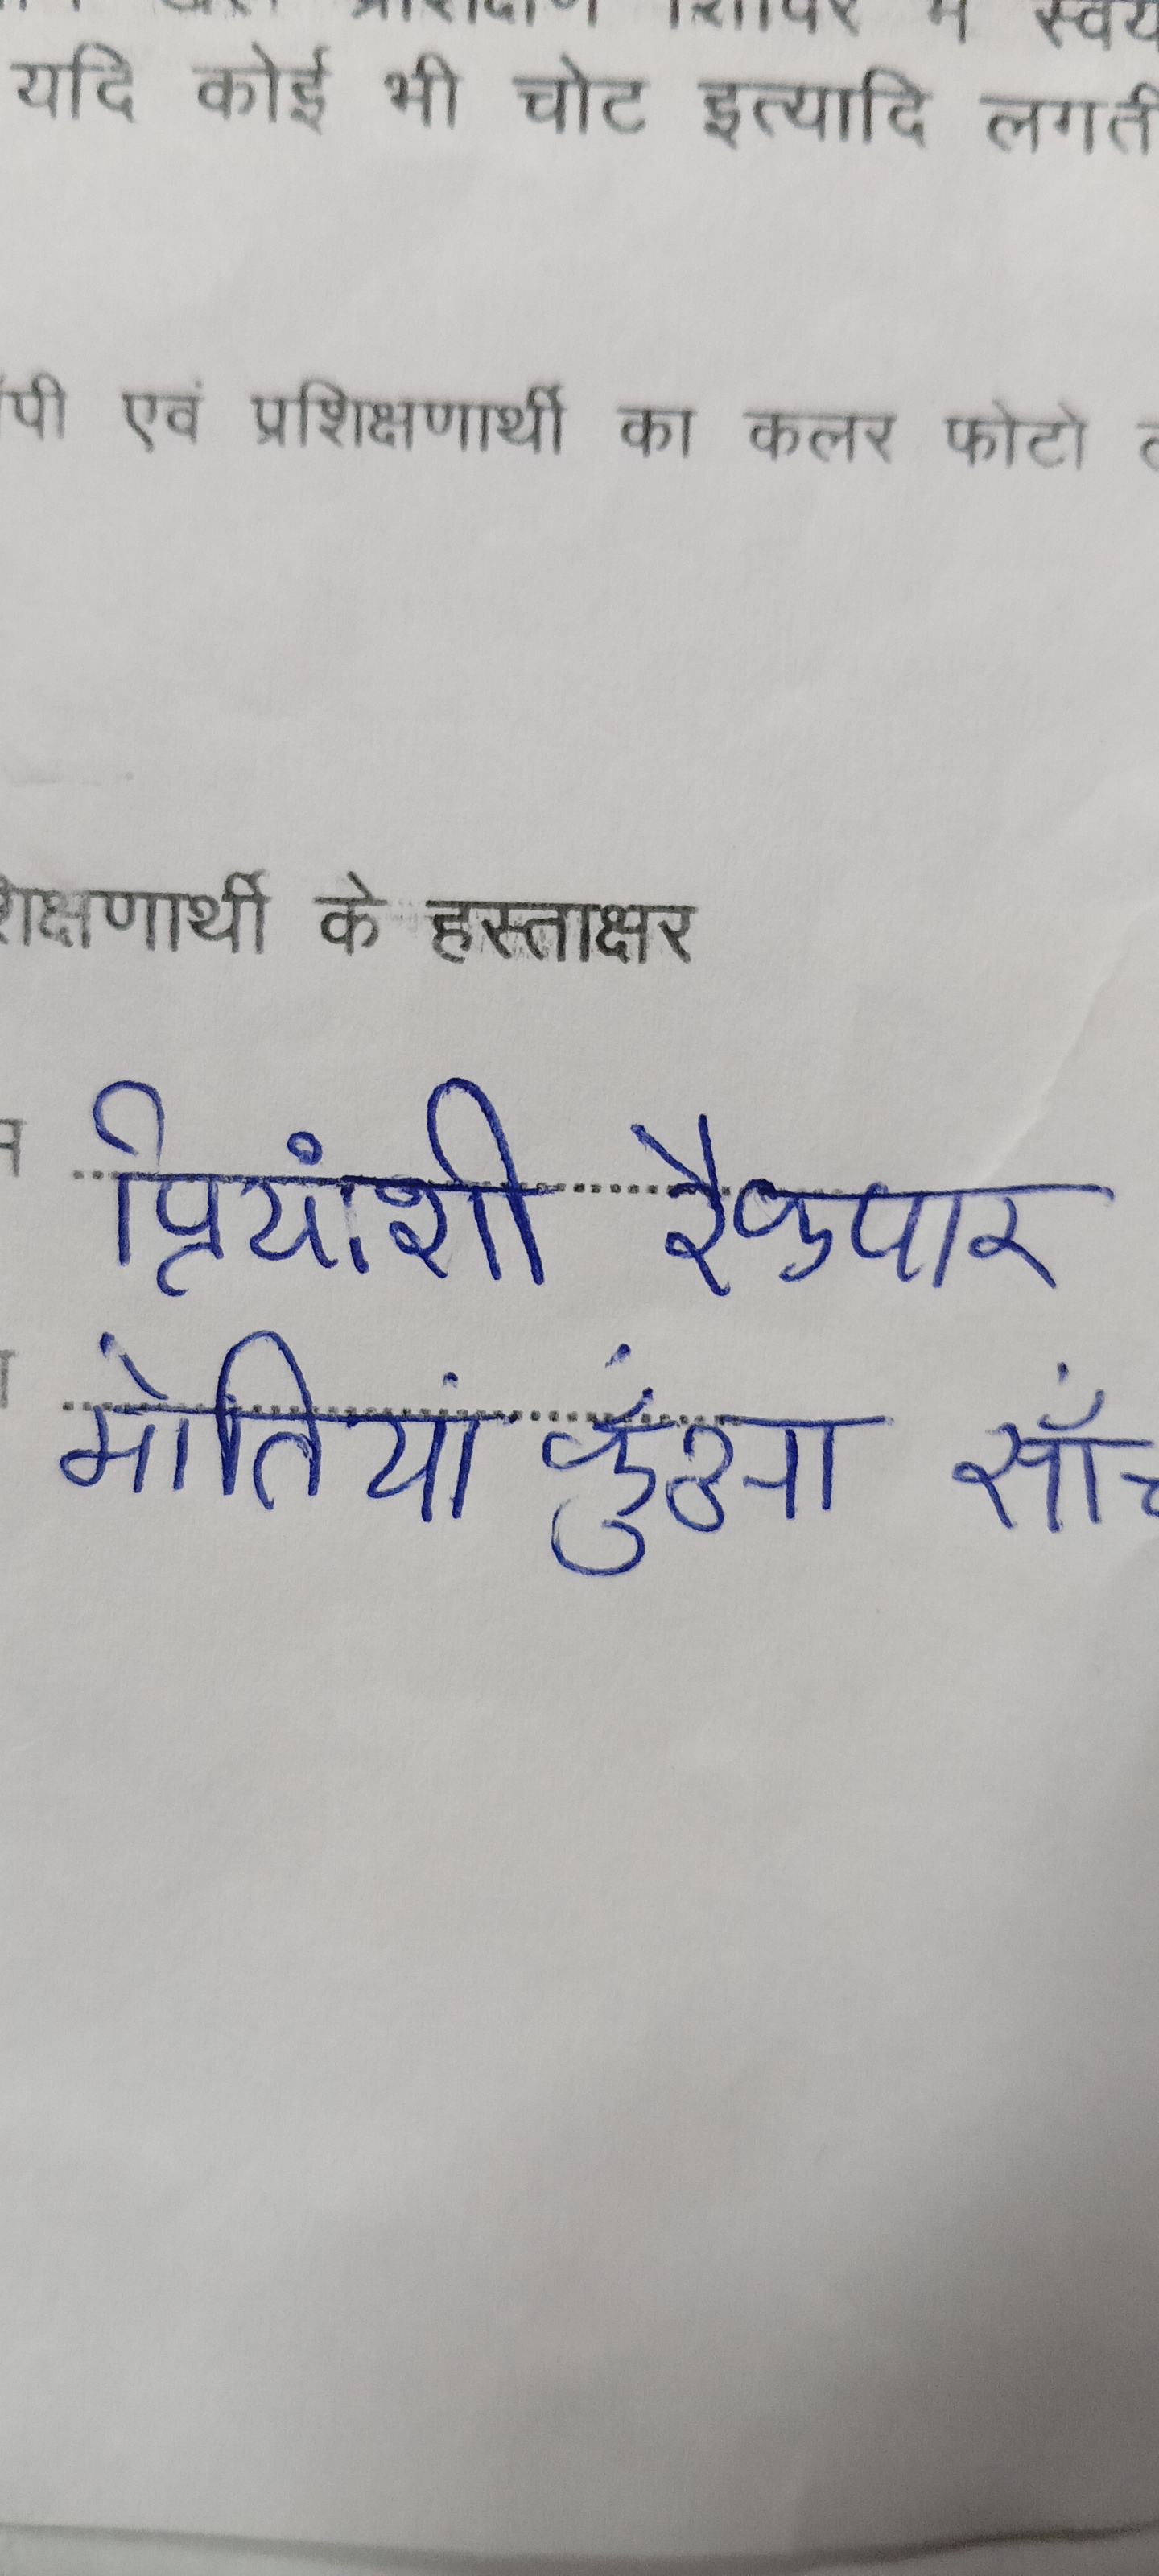 प्रशिक्षण शिविर में स्वयं
यदि कोई भी चोट इत्यादि लगती
पी एवं प्रशिक्षणार्थी का कलर फोटो
शिक्षणार्थी के हस्ताक्षर
प्रियांशी रैकपार
मोतियां कुंआ साँच